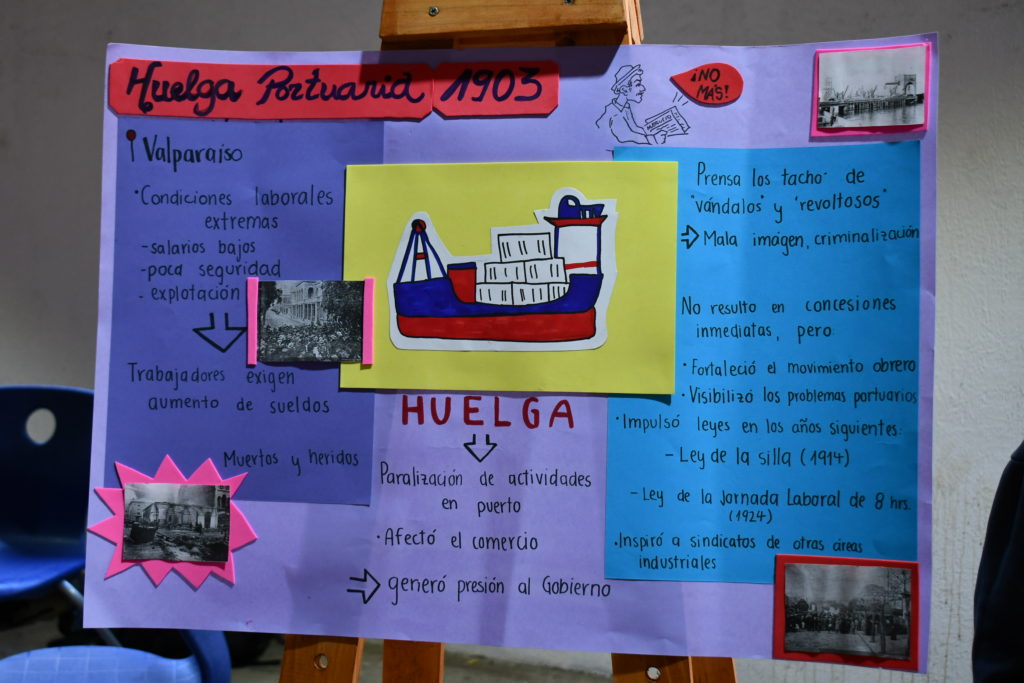 Huelga Portuaria 1903
¡NO
MÁS!
Valparaíso
• Condiciones laborales
extremas
- salarios bajos
- poca seguridad
- explotación
Trabajadores exigen
aumento de sueldos
Muertos y heridos
HUELGA
Paralización de actividades
en puerto
• Afectó el comercio
generó presión al Gobierno
Prensa los tachó de
"vándalos" y "revoltosos"
Mala imágen, criminalización
No resulto en concesiones
inmediatas, pero:
• Fortaleció el movimiento obrero
• Visibilizó los problemas portuarios
• Impulsó leyes en los años siguientes:
- Ley de la silla (1914)
- Ley de la Jornada Laboral de 8 hrs.
(1924)
• Inspiró a sindicatos de otras áreas
industriales